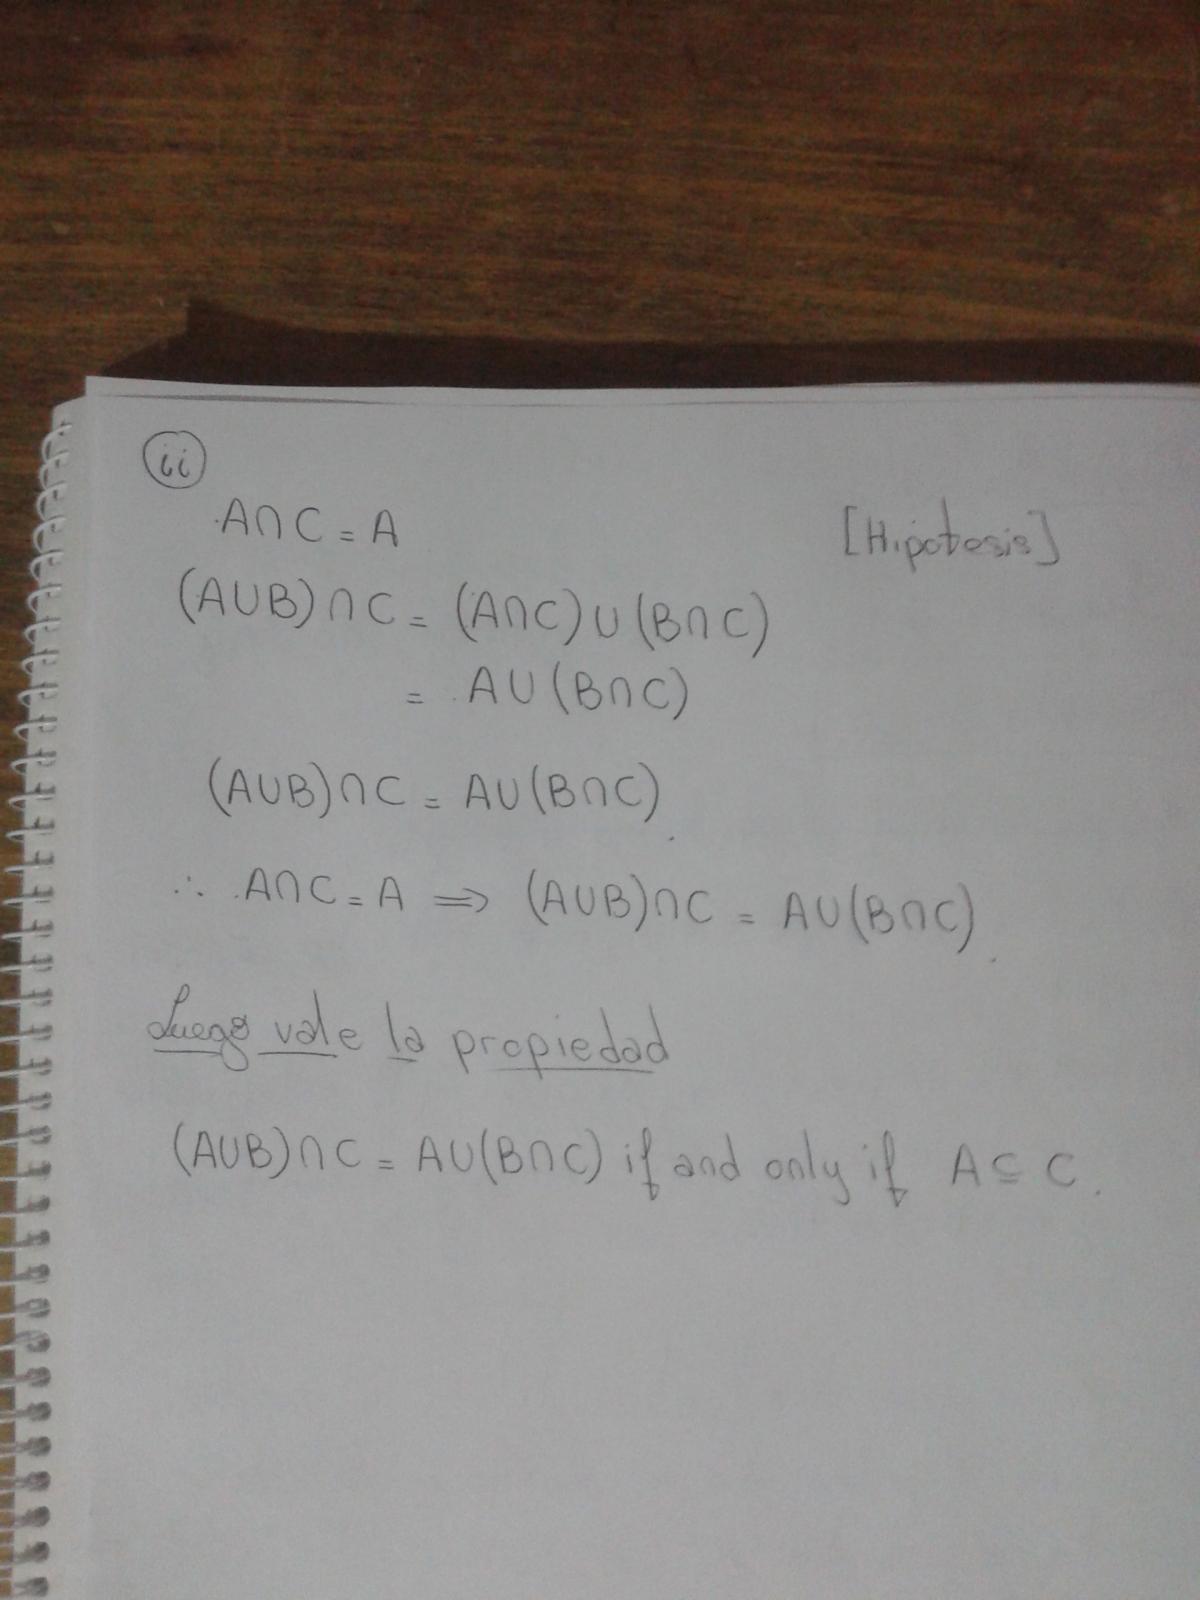 ii
A∩C = A [Hipótesis]
(A∪B)∩C = (A∩C)∪(B∩C)
= A∪(B∩C)
(A∪B)∩C = A∪(B∩C).
∴ A∩C = A ⟹ (A∪B)∩C = A∪(B∩C).
Luego vale la propiedad
(A∪B)∩C = A∪(B∩C) if and only if A ⊆ C.